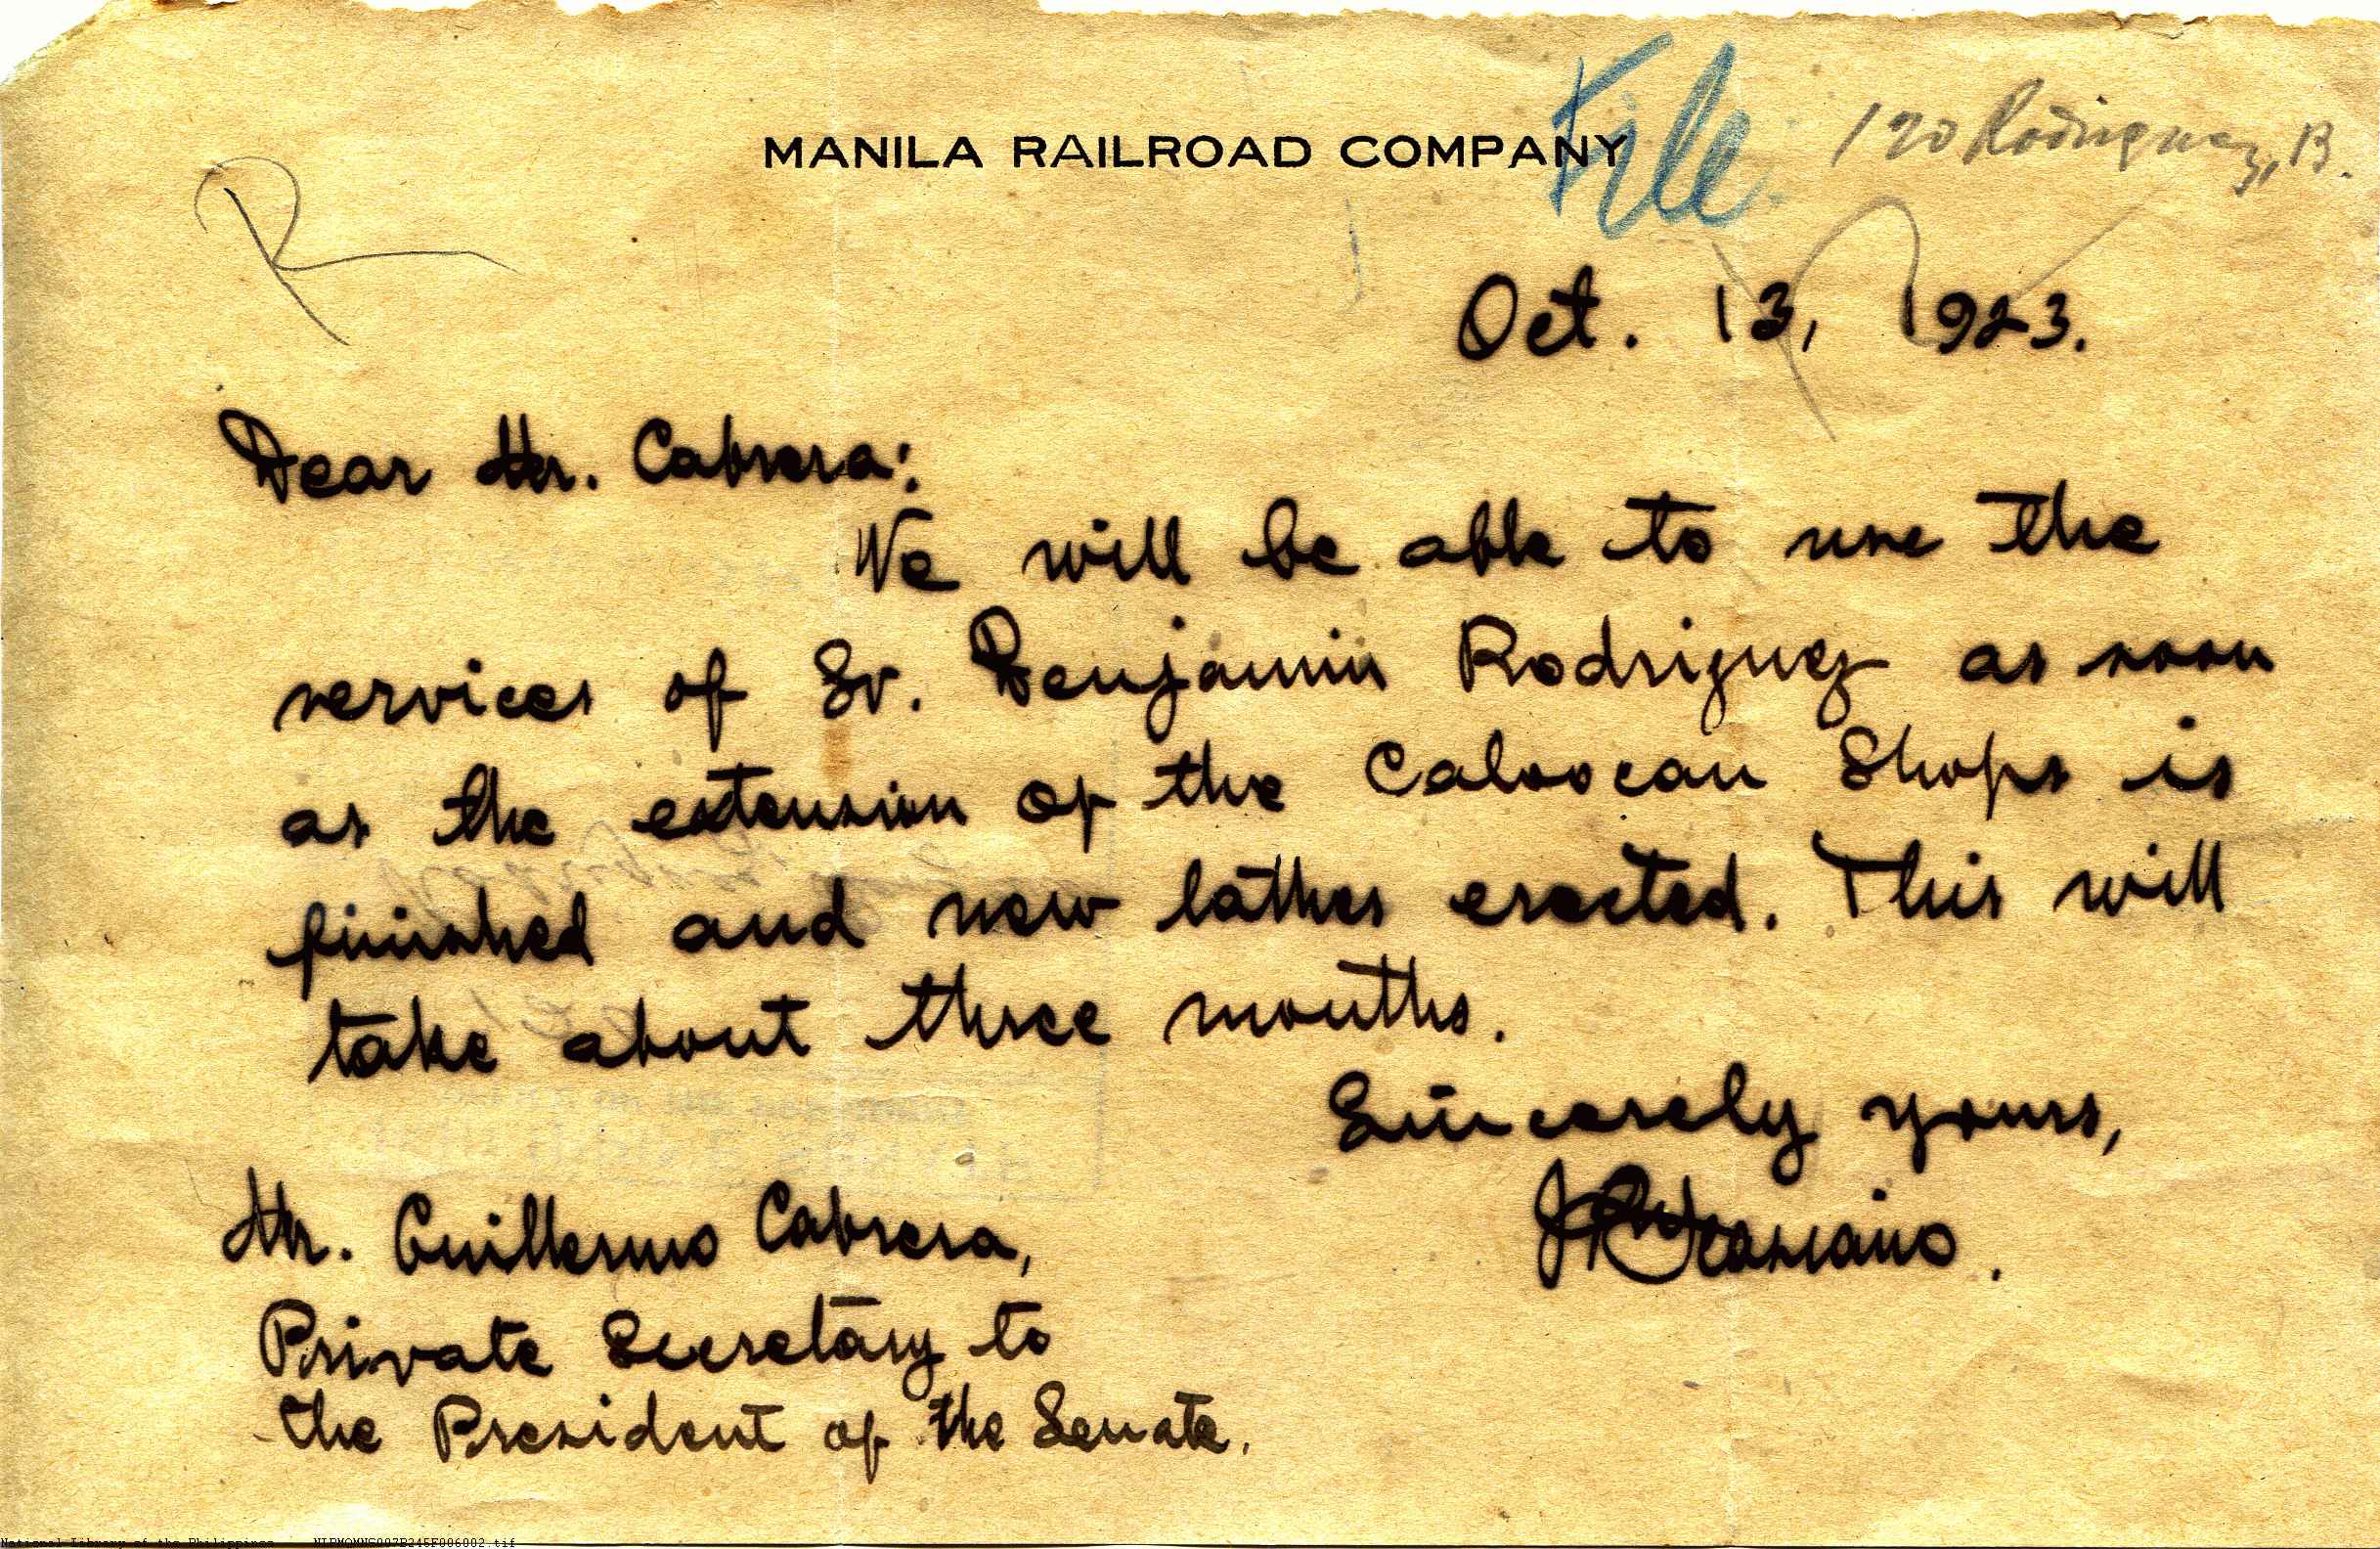 MANILA RAILROAD COMPANY
File
120 Rodriguez, B.
R
Oct. 13, 1923.
Dear Mr. Cabrera:
We will be able to use the
services of Sr. Benjamin Rodriguez as soon
as the extension of the Caloocan Shops is
finished and new lathes erected. This will
take about three months.
Sincerely yours,
Mr. Guillermo Cabrera,
Private Secretary to
the President of the Senate.
National Library of the Philippines